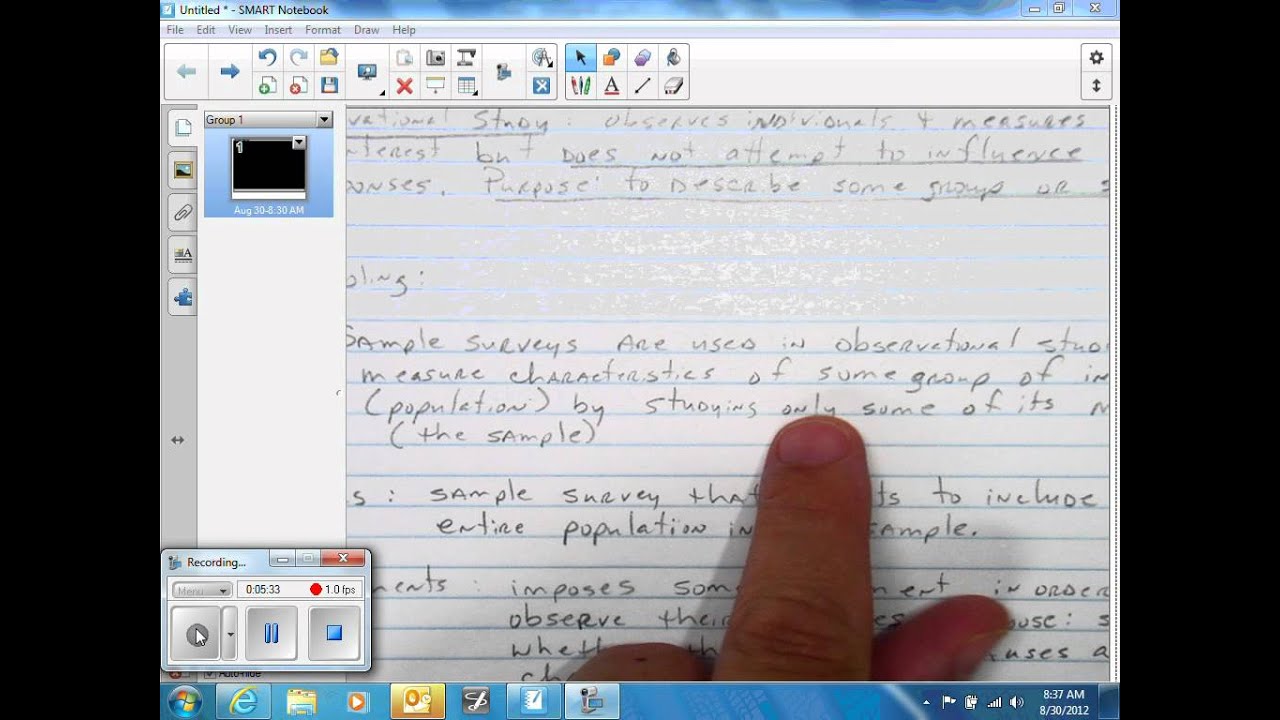 Untitled * - SMART Notebook
File Edit View Insert Format Draw Help
Group 1
1
Aug 30-8:30 AM
vational Study: Observes individuals & measures
nterest but Does not attempt to influence
onses. Purpose: to Describe some group or s
pling:
Sample surveys are used in observational stud
measure characteristics of some group of in
(population) by studying only some of its
(the sample)
s: sample survey that ts to include
entire population in sample.
ments: imposes som ment in order
observe their es ose: s
whet th uses a
ch
Recording...
Menu
0:05:33
1.0 fps
Auto-hide
8:37 AM
8/30/2012